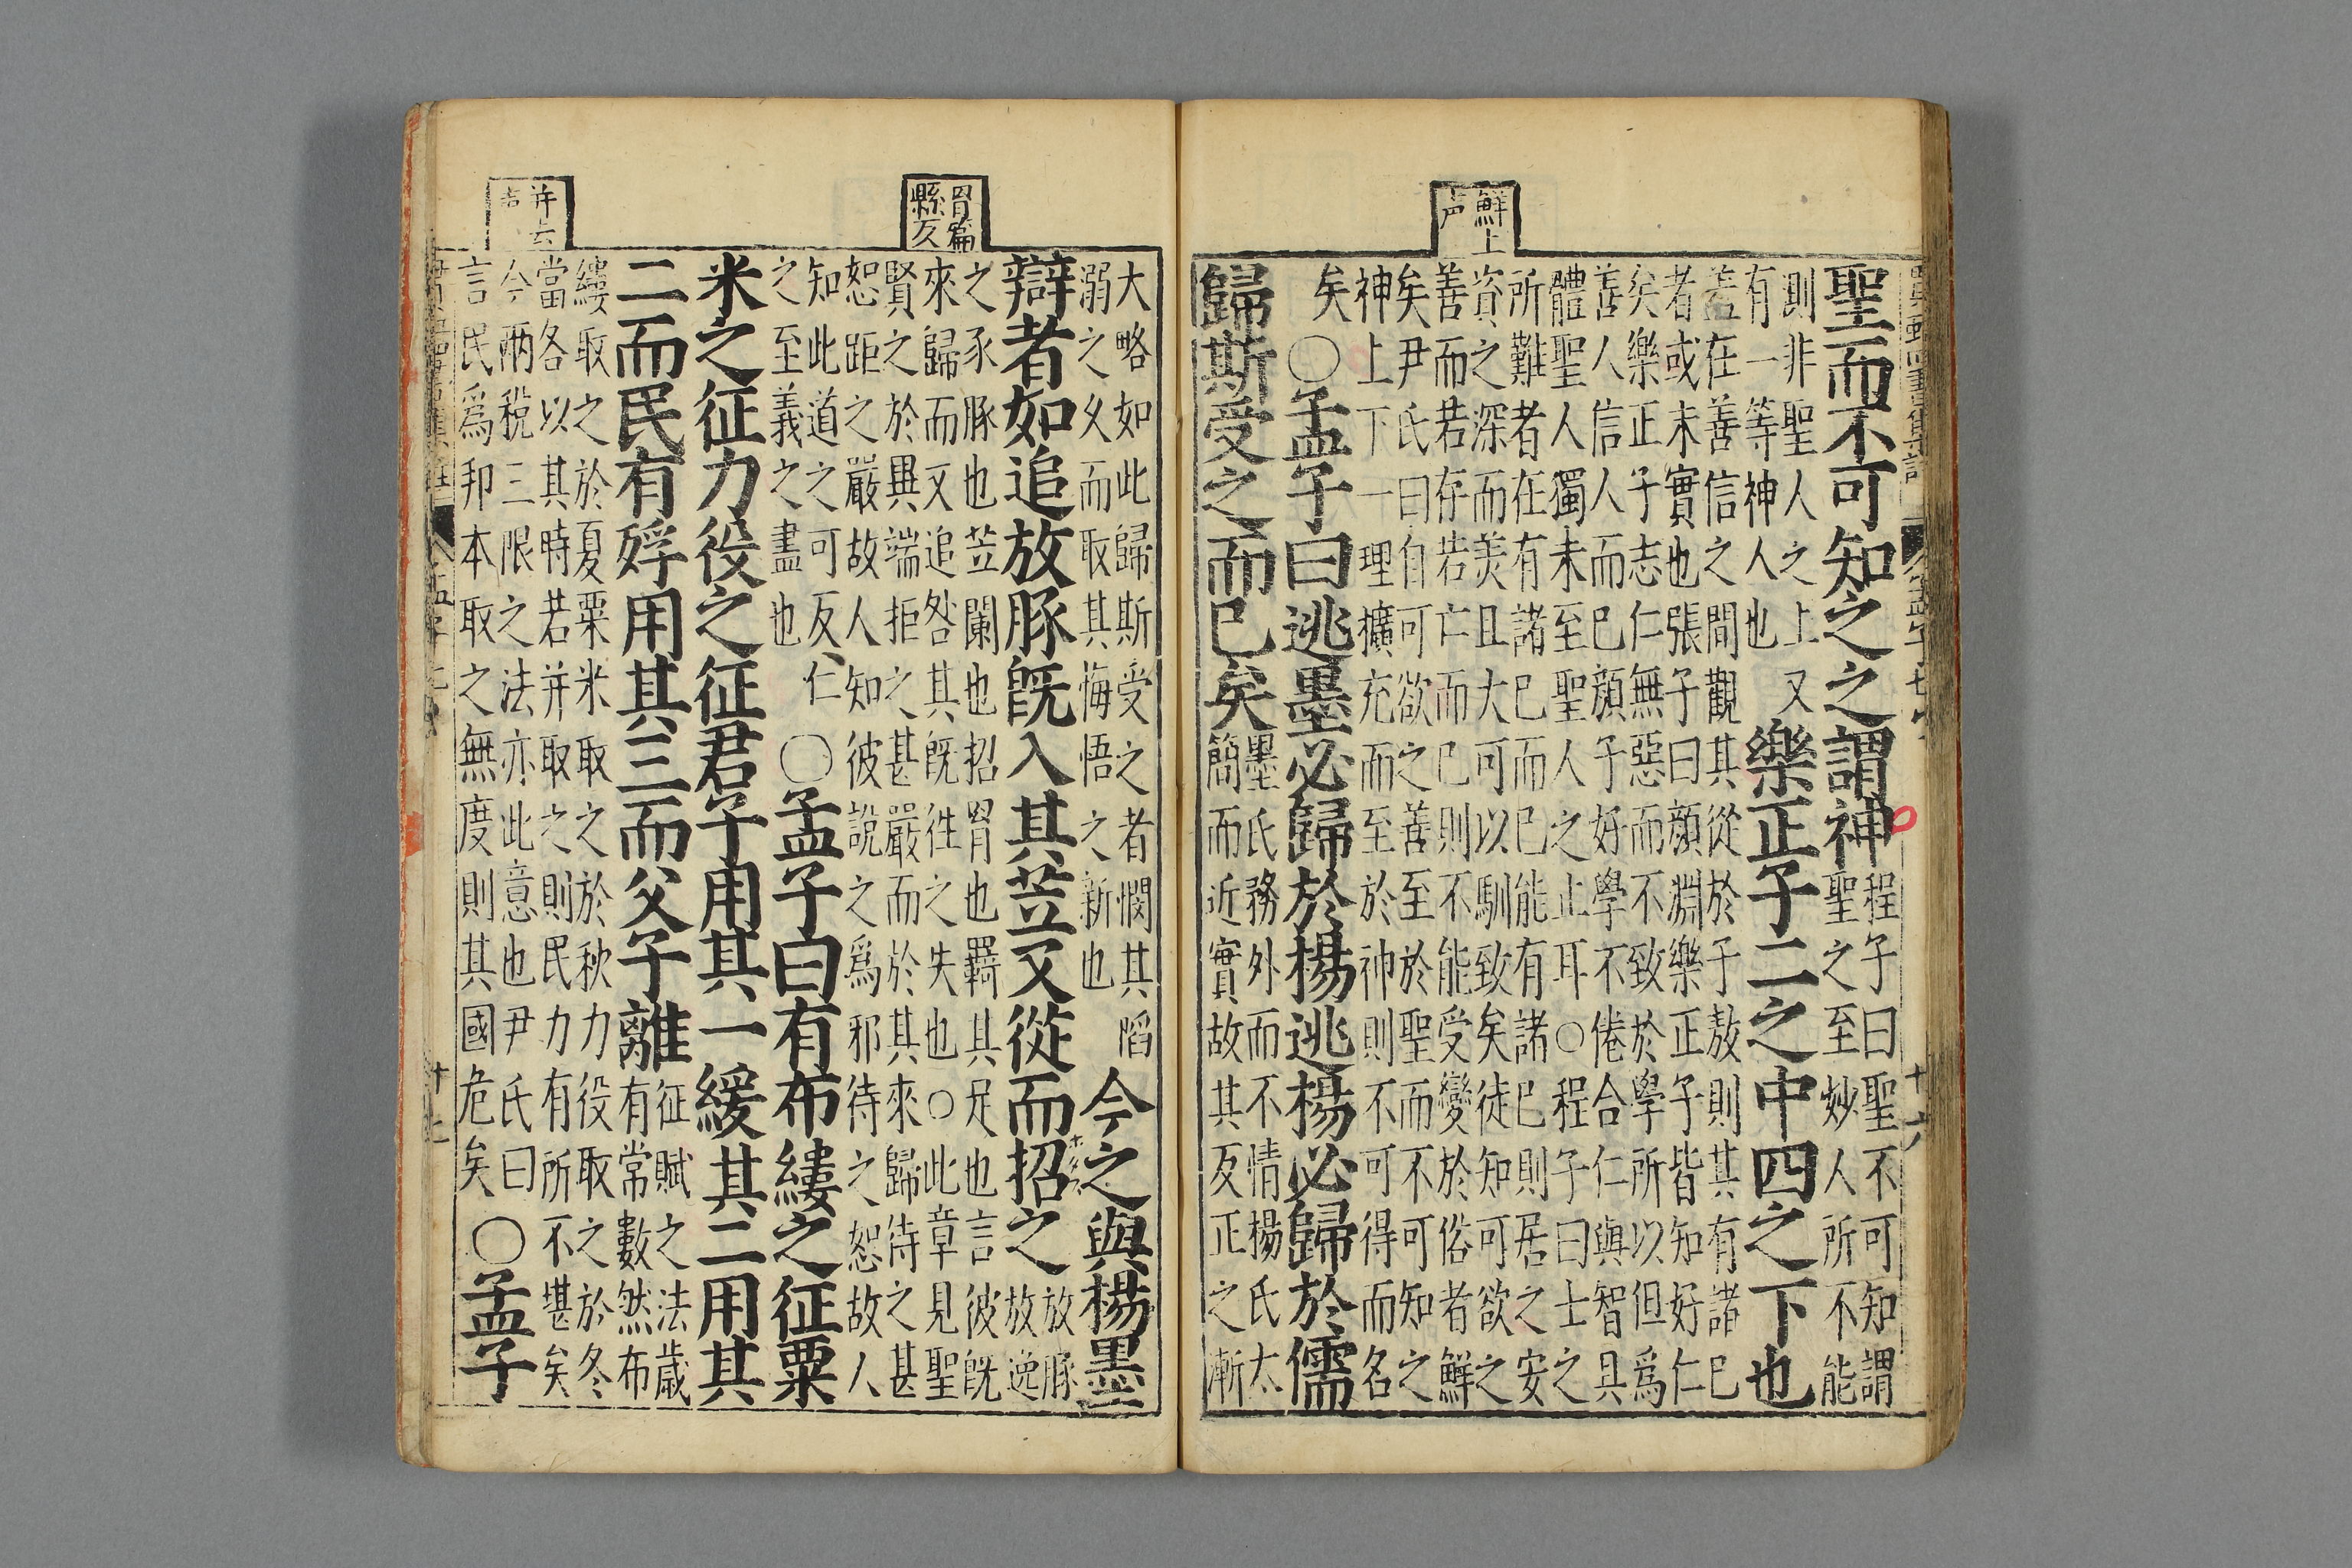 鮮上
声
聖而不可知之之謂神
程子曰聖不可知謂
聖之至妙人所不能
則非聖人之上又
有一等神人也
樂正子二之中四之下也
蓋在善信之間觀其從於于敖則其有諸已
者或未實也張子曰顏淵樂正子皆知好仁
矣樂正子志仁無惡而不致於學所以但爲
善人信人而已顏子好學不倦合仁與智具
體聖人獨未至聖人之止耳○程子曰士之
所難者在有諸已而已已能有諸已則居之安
資之深而美且大可以馴致矣徒知可欲之
善而若存若亡而已則不能受變於俗者鮮
矣尹氏曰自可欲之善至於聖而不可知之
神上下一理擴充而至於神則不可得而名
矣
○孟子曰逃墨必歸於楊逃楊必歸於儒
歸斯受之而已矣
墨氏務外而不情楊氏太
簡而近實故其反正之漸
罥篇
縣反
并去
大略如此歸斯受之者憫其陷
溺之久而取其悔悟之新也
今之與楊墨
辯者如追放豚旣入其苙又從而招之
放豚
放逸
之豕豚也苙闌也招罥也羈其足也言彼旣
來歸而又追咎其旣往之失也○此章見聖
賢之於異端拒之甚嚴而於其來歸待之甚
恕距之嚴故人知彼說之爲邪待之恕故人
知此道之可反仁
之至義之盡也
○孟子曰有布縷之征粟
米之征力役之征君子用其一緩其二用其
二而民有殍用其三而父子離
征賦之法歲
有常數然布
縷取之於夏粟米取之於秋力役取之於冬
當各以其時若并取之則民力有所不堪矣
今兩稅三限之法亦此意也尹氏曰
言民爲邦本取之無度則其國危矣
○孟子